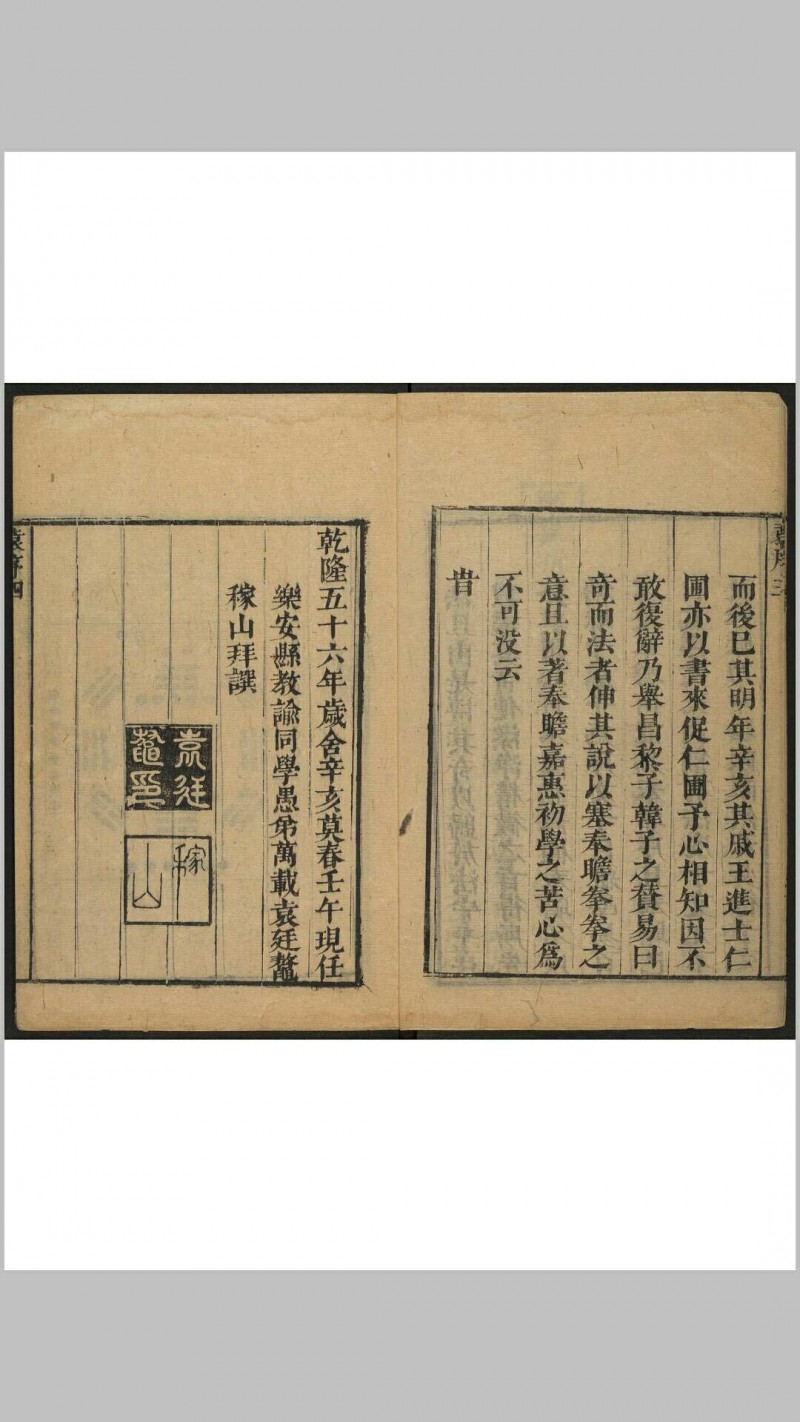 而後已其明年辛亥其戚王進士仁
圃亦以書來促仁圃予心相知因不
敢復辭乃舉昌黎子韓子之賛易曰
竒而法者伸其說以塞奉瞻拳拳之
意且以著奉瞻嘉惠初學之苦心爲
不可没云
旹
乾隆五十六年歲舍辛亥莫春壬午現任
樂安縣教諭同學愚弟萬載袁廷鰲
稼山拜譔
袁廷鰲印
稼山
袁序四